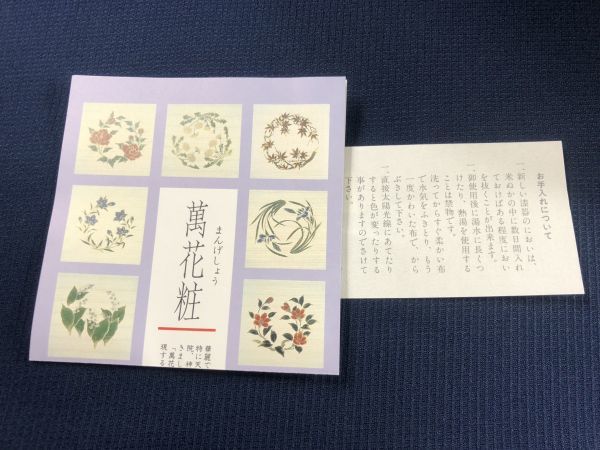 お手入れについて
一、新しい漆器のにおいは、
米ぬかの中に数日間入れ
ておけばある程度におい
を抜くことが出来ます。
一、御使用後に湯水に長くつ
けたり、熱湯を使用する
ことは禁物です。
洗ってからすぐ柔かい布
で水気をふきとり、もう
一度かわいた布で、から
ぶきして下さい。
一、直接太陽光線にあてたり
すると色が変ったりする
事がありますのでさけて
下さい。
まんげしょう
萬花粧
華麗で
特に天
院、神
きまし
「萬花
視する